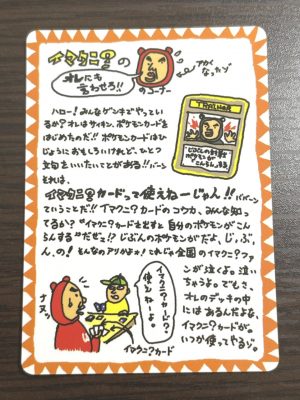 イマクニ?の
オレにも
言わせろ!!
のコーナー
アカく
なったゾ
TRAINER
じぶんの対戦
ポケモンが
こんらんする
ハロー!みんなゲンキでやってい
るか?オレはサイキン、ポケモンカードを
はじめたのだ!!ポケモンカードはひ
じょうにおもしろいけれど、ひとつ
文句をいいたいことがある!!バーン
それは、
イマクニ?カードって使えねーじゃん!!ババーン
ということだ!!イマクニ?カードのコウカ、みんな知っ
てるか?"イマクニ?カードを出すと自分のポケモンがこん
らんする"だぜっ!?じぶんのポケモンがだよ、じ、ぶ、
ん、の!そんなのアリかよォ!これじゃ全国のイマクニ?ファ
ンが泣くよ。泣い
ちゃうよ。でもさ、
オレのデッキの中
にはあるんだよな、
イマクニ?カードが。
いつか使ってやるゾ。
イマクニ?カード?
使わねーよ。
ナヌ。
イマクニ?カード